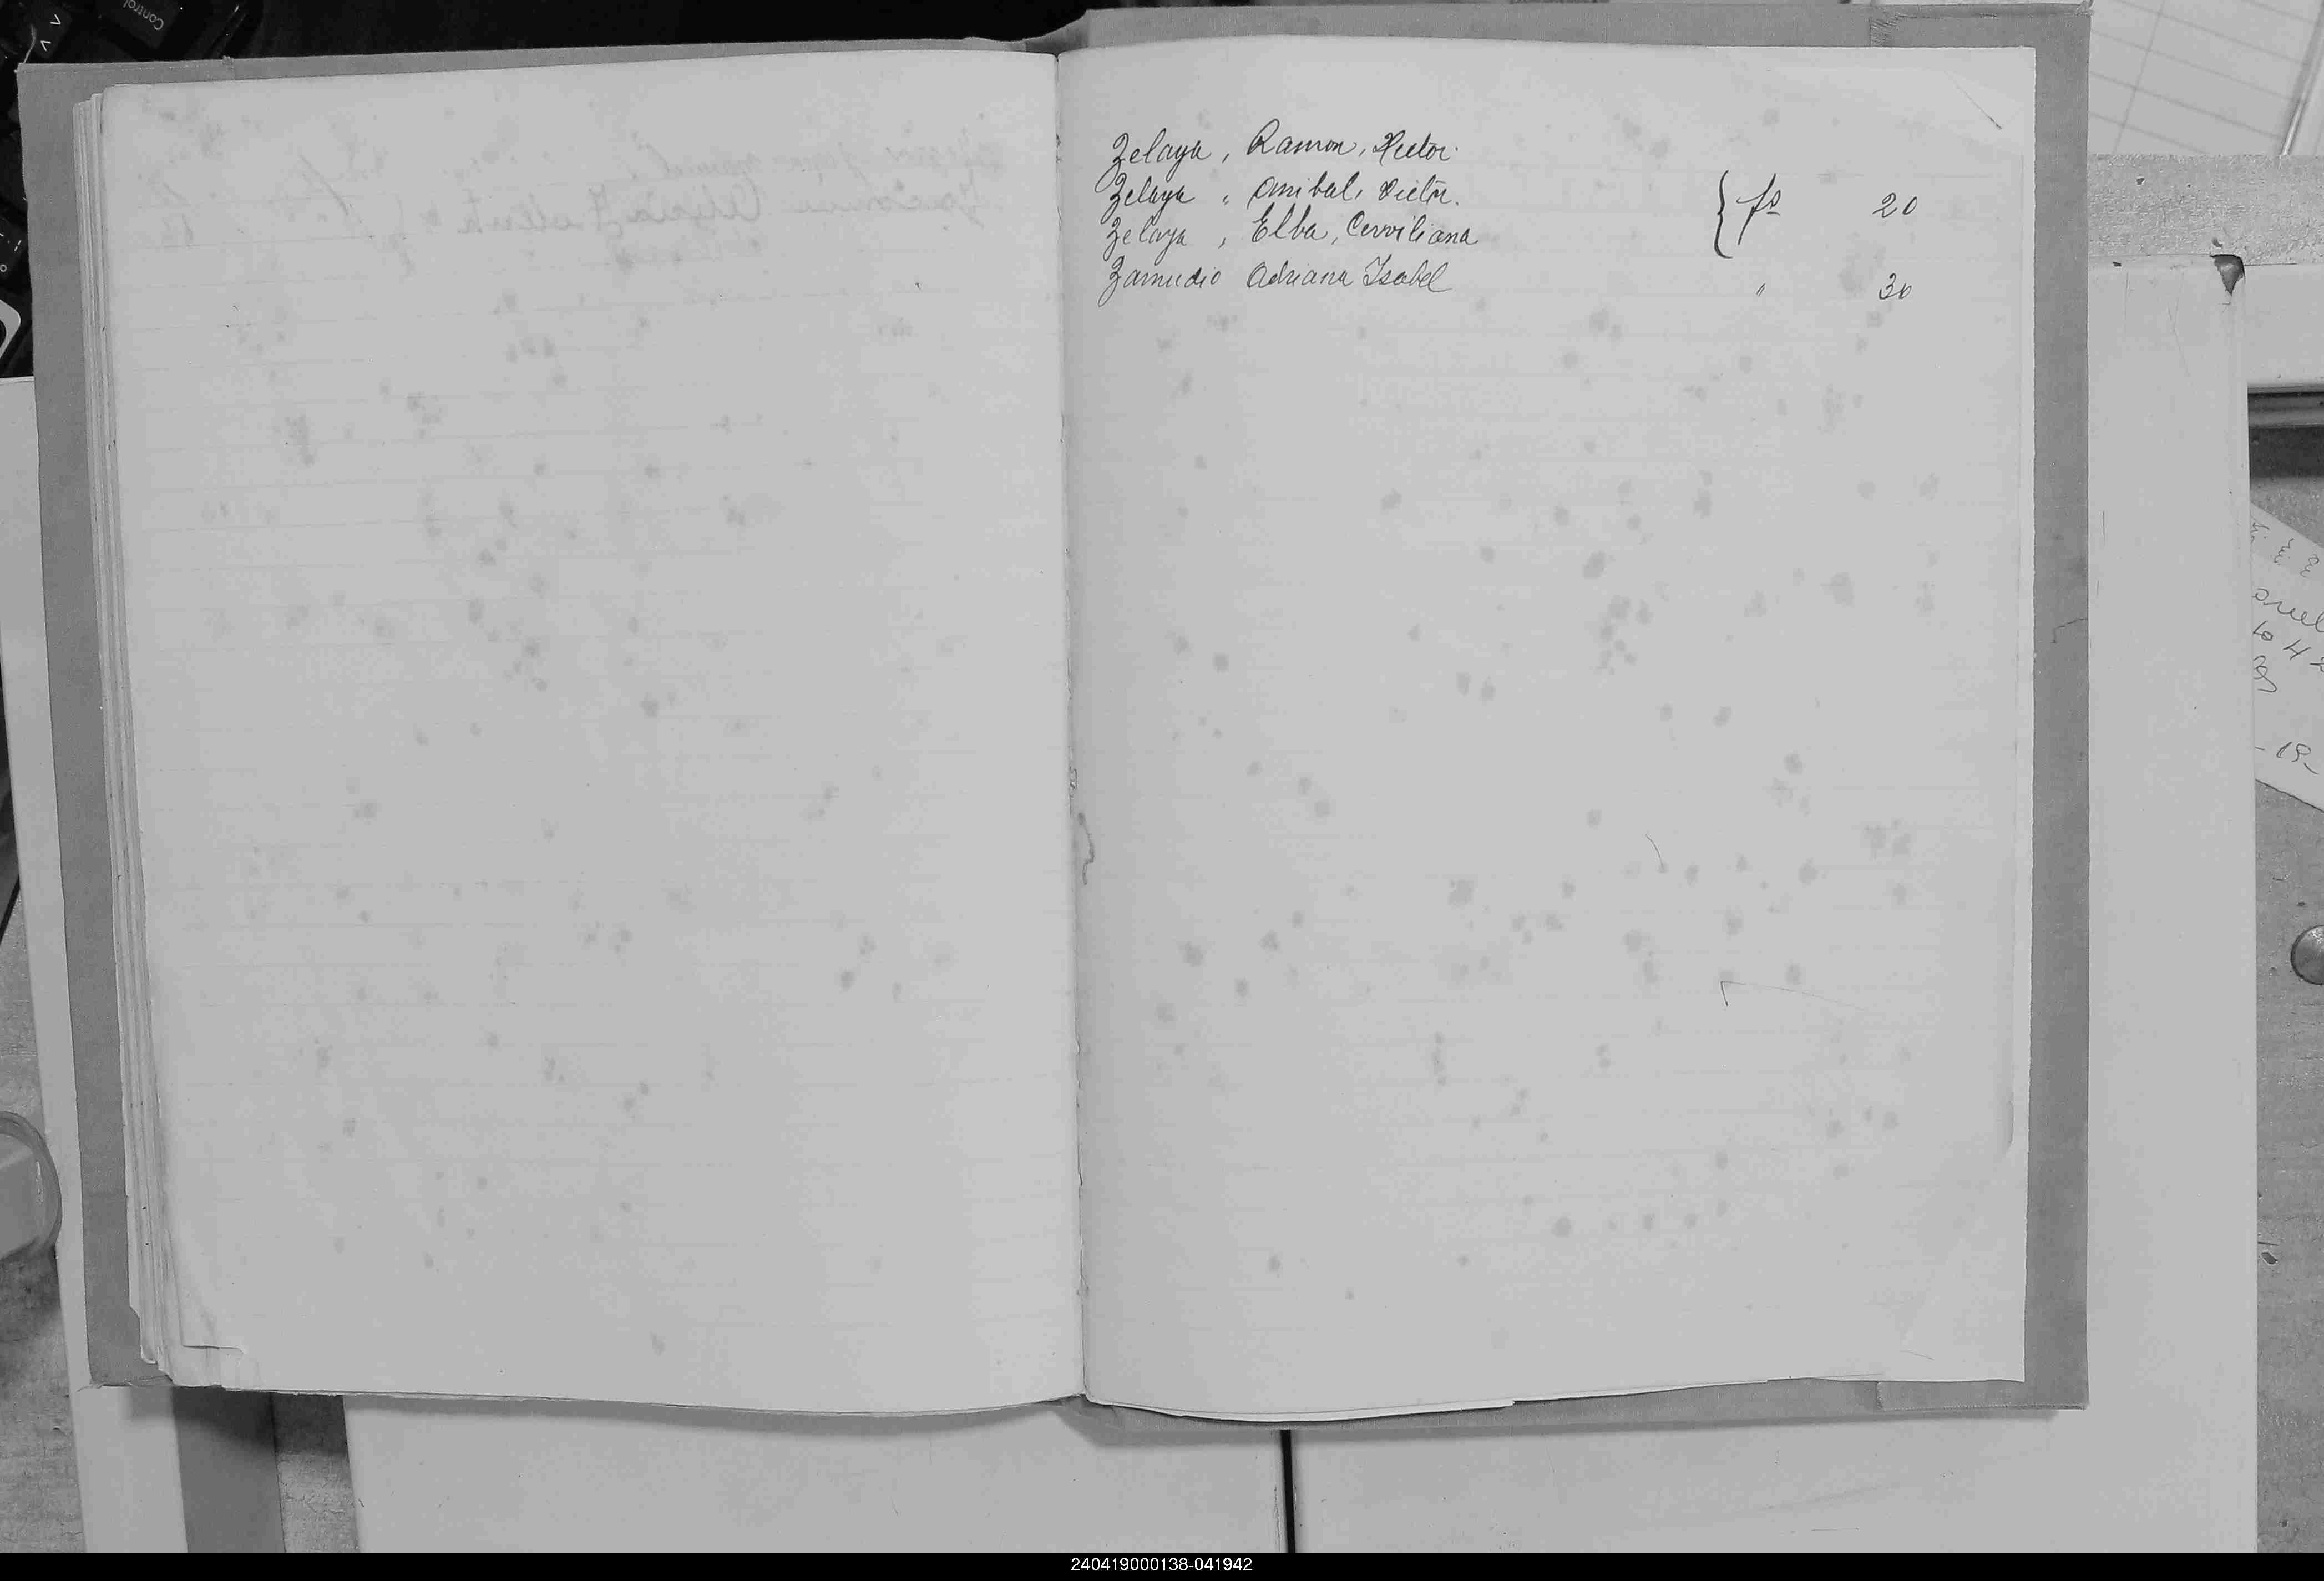 Zelaya, Ramon, Hector.
Zelaya " Anibal, Victor.
Zelaya, Elba, Cerviliana
{ fs 20
Zamudio Adriana Isabel " 30
240419000138-041942